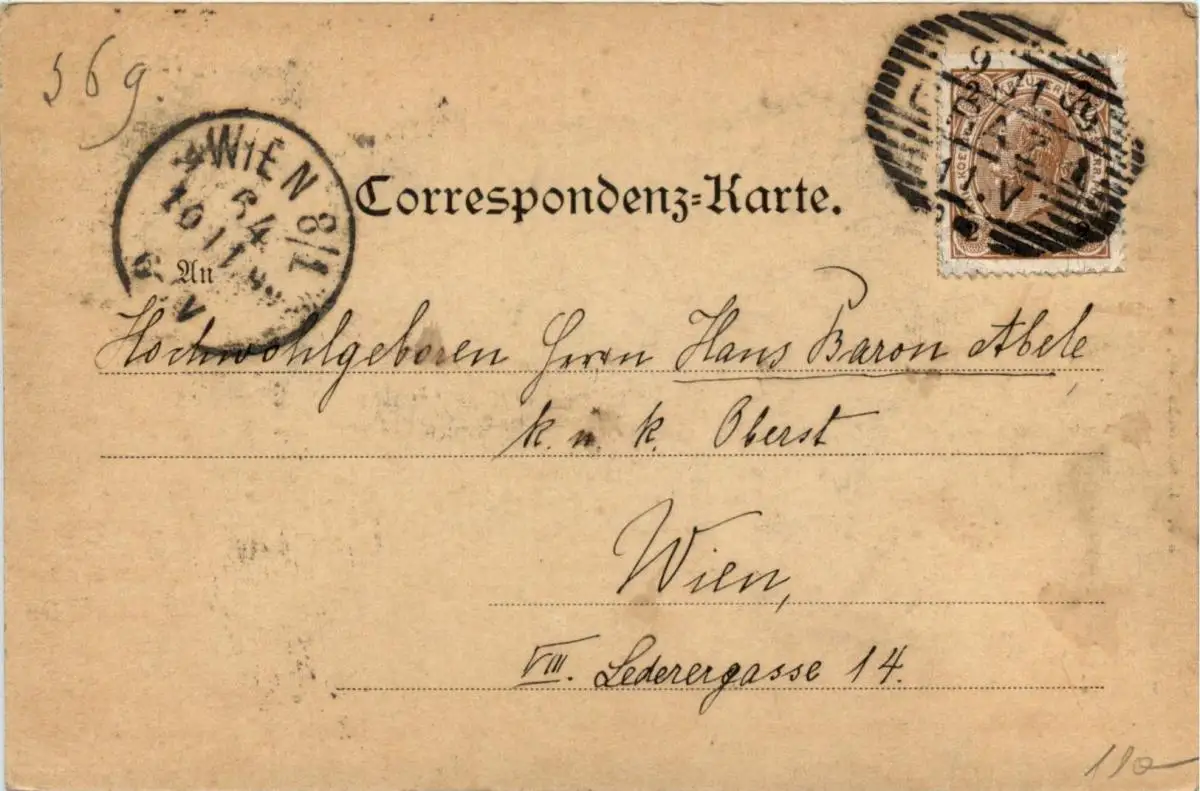 569
WIEN 8/1
Correspondenz-Karte.
An
Hochwohlgeboren Herrn Hans Baron Abele
k. u. k. Oberst
Wien,
VIII. Lederergasse 14.
190